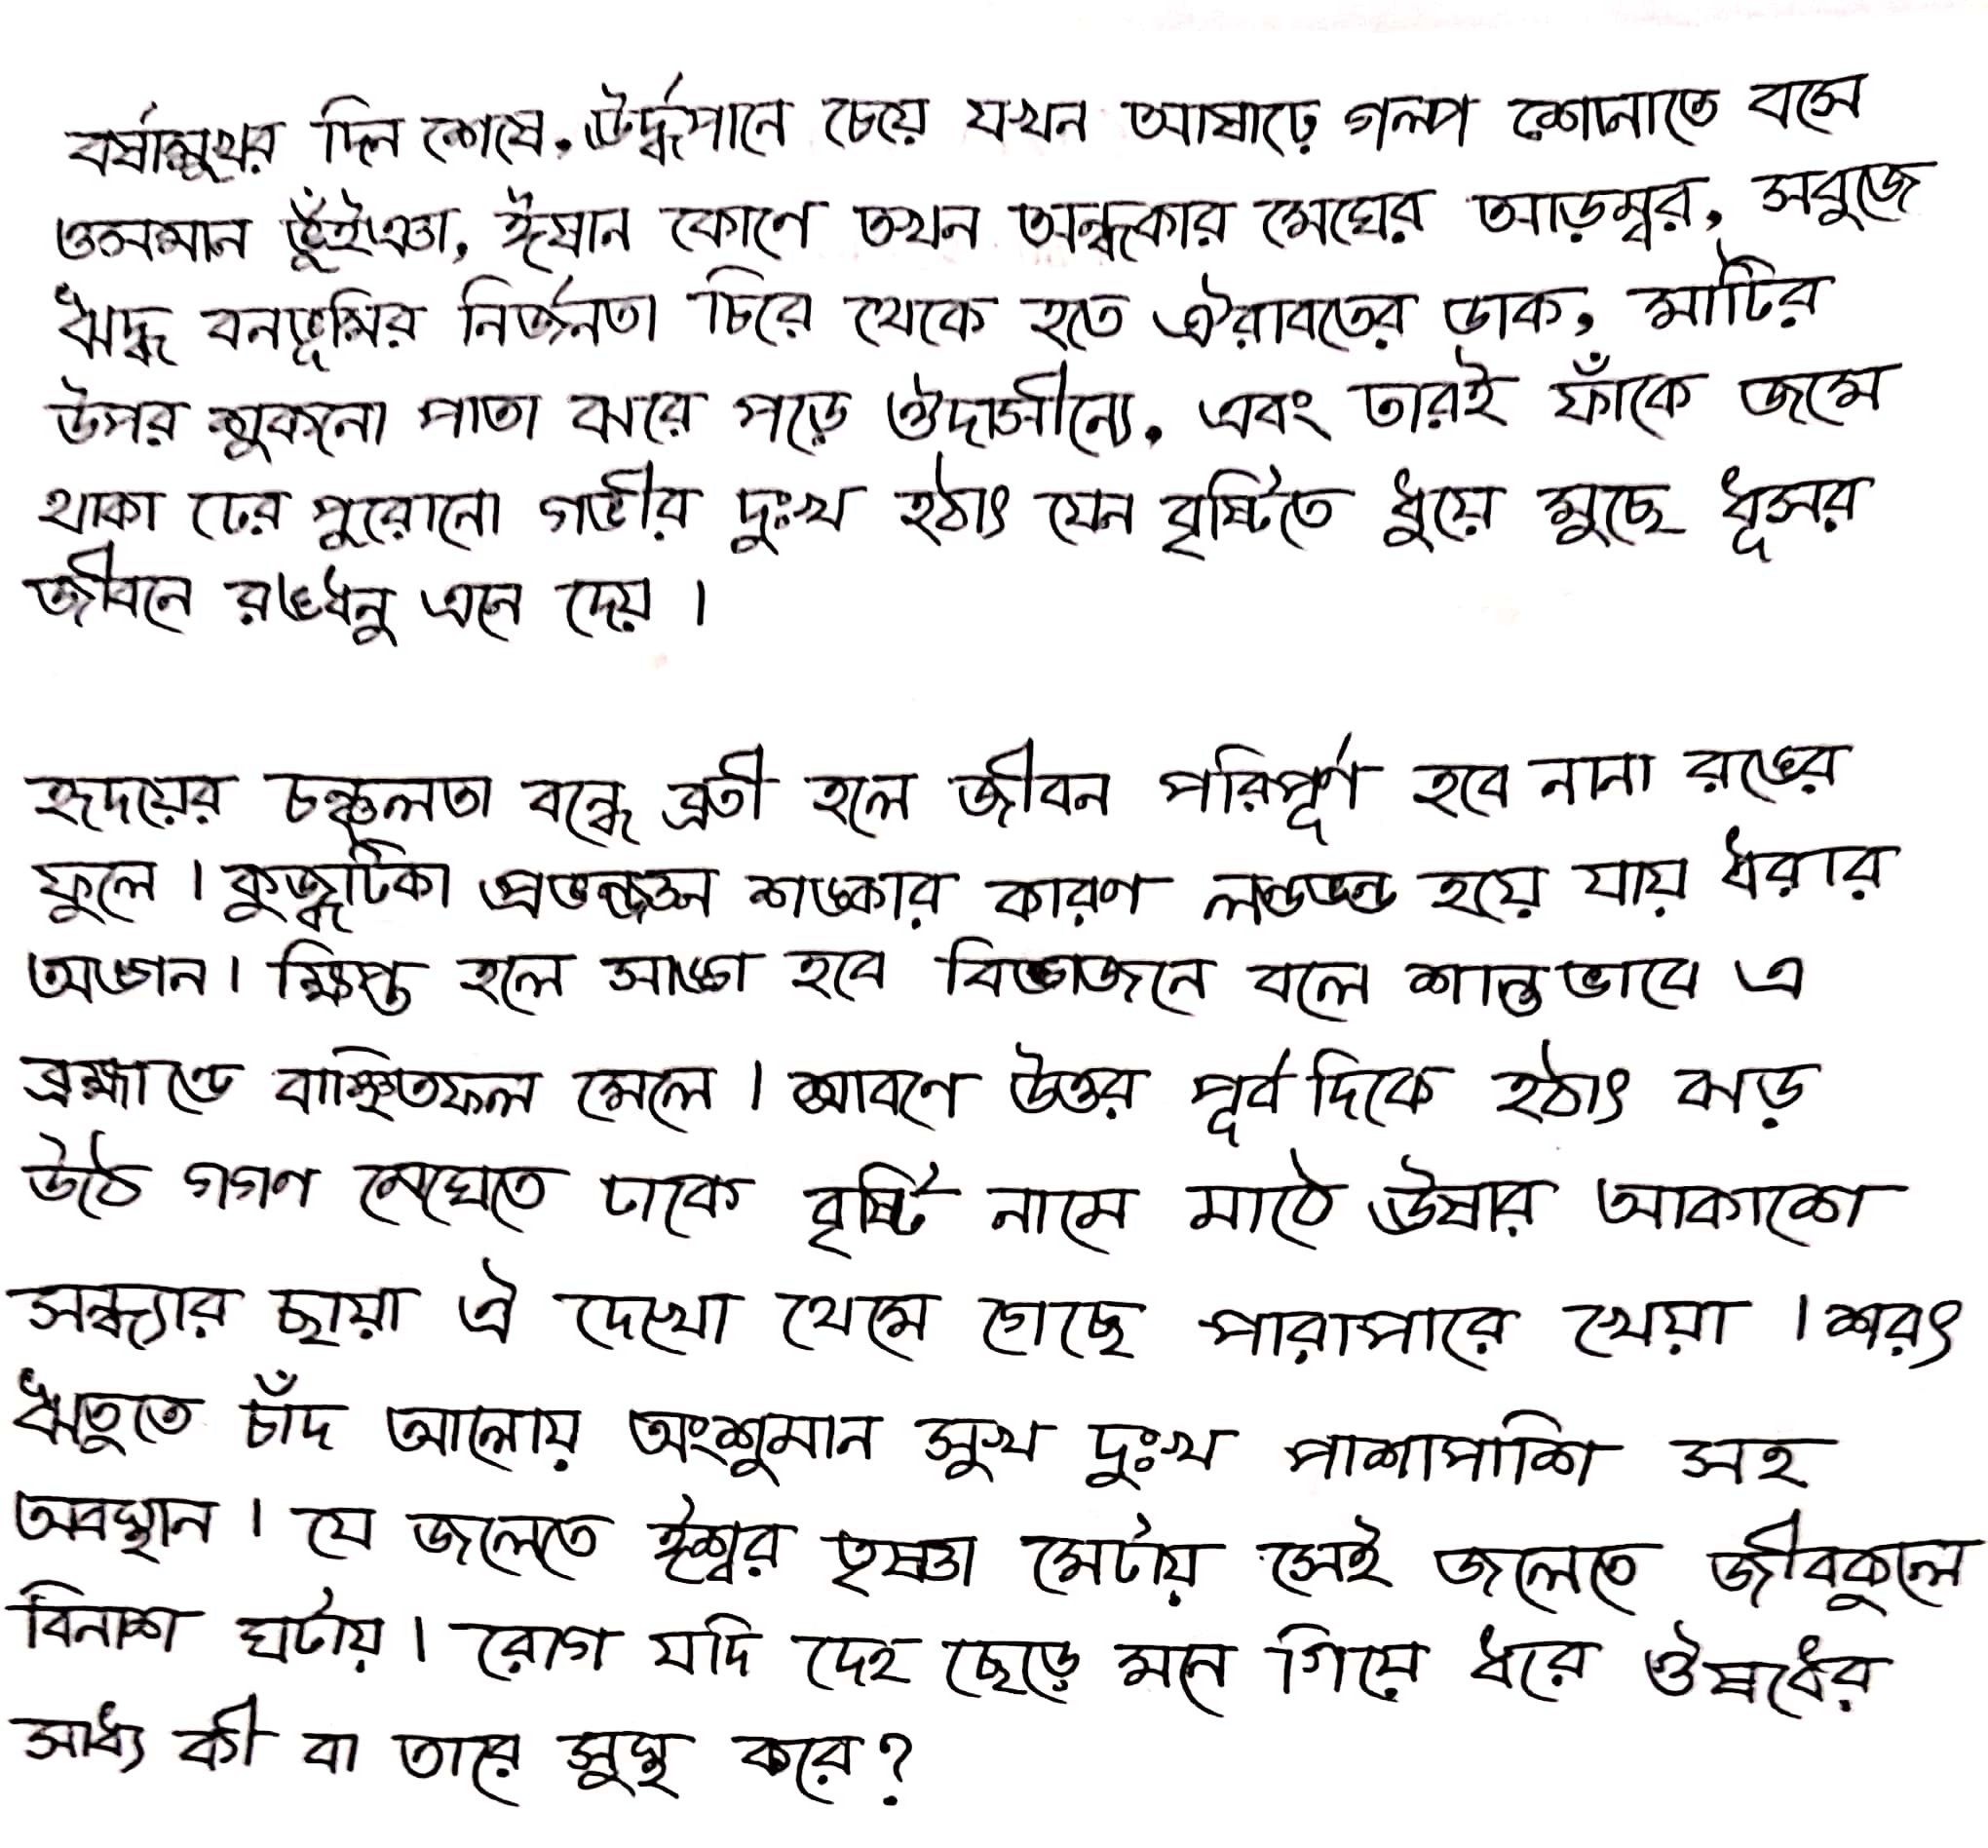 বর্ষামুখর দিন শেষে, ঊর্দ্ধপানে চেয়ে যখন আষাঢ়ে গল্প শোনাতে বসে
ওসমান ভুঁইঞা, ঈষান কোণে তখন অন্ধকার মেঘের আড়ম্বর, সবুজে
ঋদ্ধ বনভূমির নির্জনতা চিরে থেকে হতে ঐরাবতের ডাক, মাটির
উপর শুকনো পাতা ঝরে পড়ে ঔদাসীন্যে, এবং তারই ফাঁকে জমে
থাকা ঢের পুরোনো গভীর দুঃখ হঠাৎ যেন বৃষ্টিতে ধুয়ে মুছে ধূসর
জীবনে রঙধনু এনে দেয়।
হৃদয়ের চঞ্চলতা বন্ধে ব্রতী হলে জীবন পরিপূর্ণ হবে নানা রঙের
ফুলে। কুজ্ঝটিকা প্রভঞ্জন শঙ্কার কারণ লন্ডভন্ড হয়ে যায় ধরার
অঙ্গন। ক্ষিপ্ত হলে সাঙ্গ হবে বিজ্ঞজনে বলে শান্ত ভাবে এ
ব্রহ্মাণ্ডে বাঞ্ছিতফল মেলে। শ্রাবণে উত্তর পূর্ব দিকে হঠাৎ ঝড়
উঠে গগণ মেঘেতে ঢাকে বৃষ্টি নামে মাঠে ঊষার আকাশে
সন্ধ্যার ছায়া ঐ দেখো থেমে গেছে পারাপারে খেয়া। শরৎ
ঋতুতে চাঁদ আলোয় অংশুমান সুখ দুঃখ পাশাপাশি সহ
অবস্থান। যে জলেতে ঈশ্বর তৃষ্ণা মেটায় সেই জলেতে জীবকুলে
বিনাশ ঘটায়। রোগ যদি দেহ ছেড়ে মনে গিয়ে ধরে ঔষধের
সাধ্য কী বা তারে সুস্থ করে?